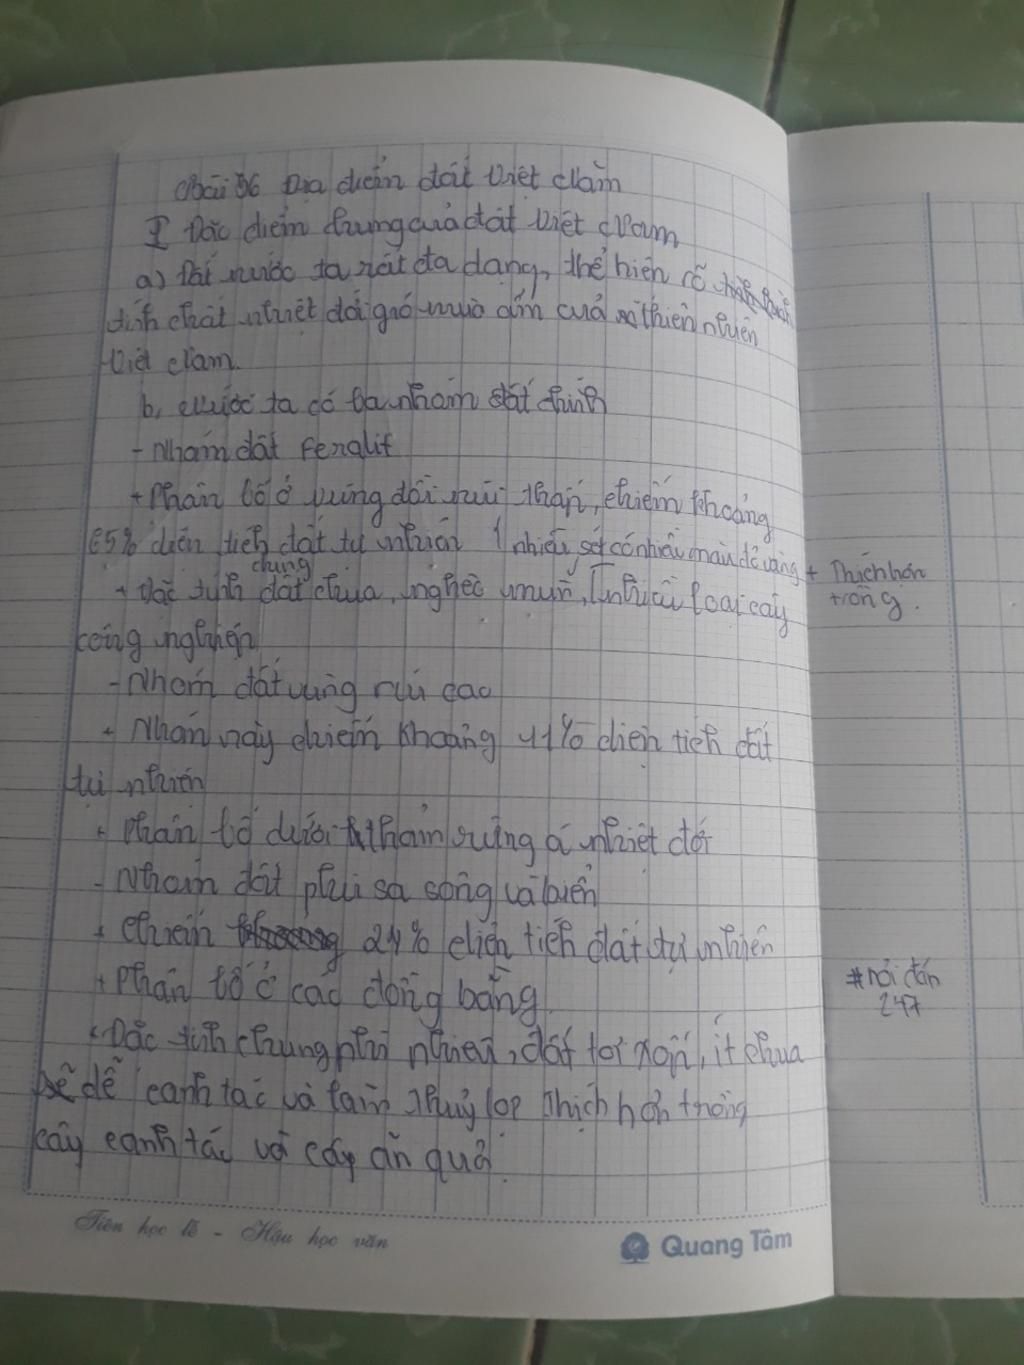 Bài 36 Địa điểm đất Việt Nam
I Đặc điểm chung của đất Việt Nam
a) Đất nước ta rất đa dạng, thể hiện rõ
tính chất nhiệt đới gió mùa ẩm của thiên nhiên
Việt Nam.
b, Nước ta có ba nhóm đất chính
- Nhóm đất Feralit
+ Phân bố ở vùng đồi núi thấp, chiếm khoảng
65% diện tích đất tự nhiên
nhiều sét có nhiều màu đỏ vàng + Thích hơn
trồng.
chung
+ Đặc tính đất chua, nghèo mùn, nhiều loại cây
công nghiệp
- Nhóm đất vùng núi cao
+ Nhóm này chiếm khoảng 11% diện tích đất
tự nhiên
+ Phân bố dưới thảm rừng á nhiệt đới
- Nhóm đất phù sa sông và biển
+ Chiếm 24% diện tích đất tự nhiên
+ Phân bố ở các đồng bằng
+ Đặc tính chung phì nhiêu, đất tơi xốp, ít chua
dễ canh tác và làm thuỷ lợi thích hợp trồng
cây canh tác và cây ăn quả.
#nói đến
247
Tiên học lễ - Hậu học văn
Quang Tâm